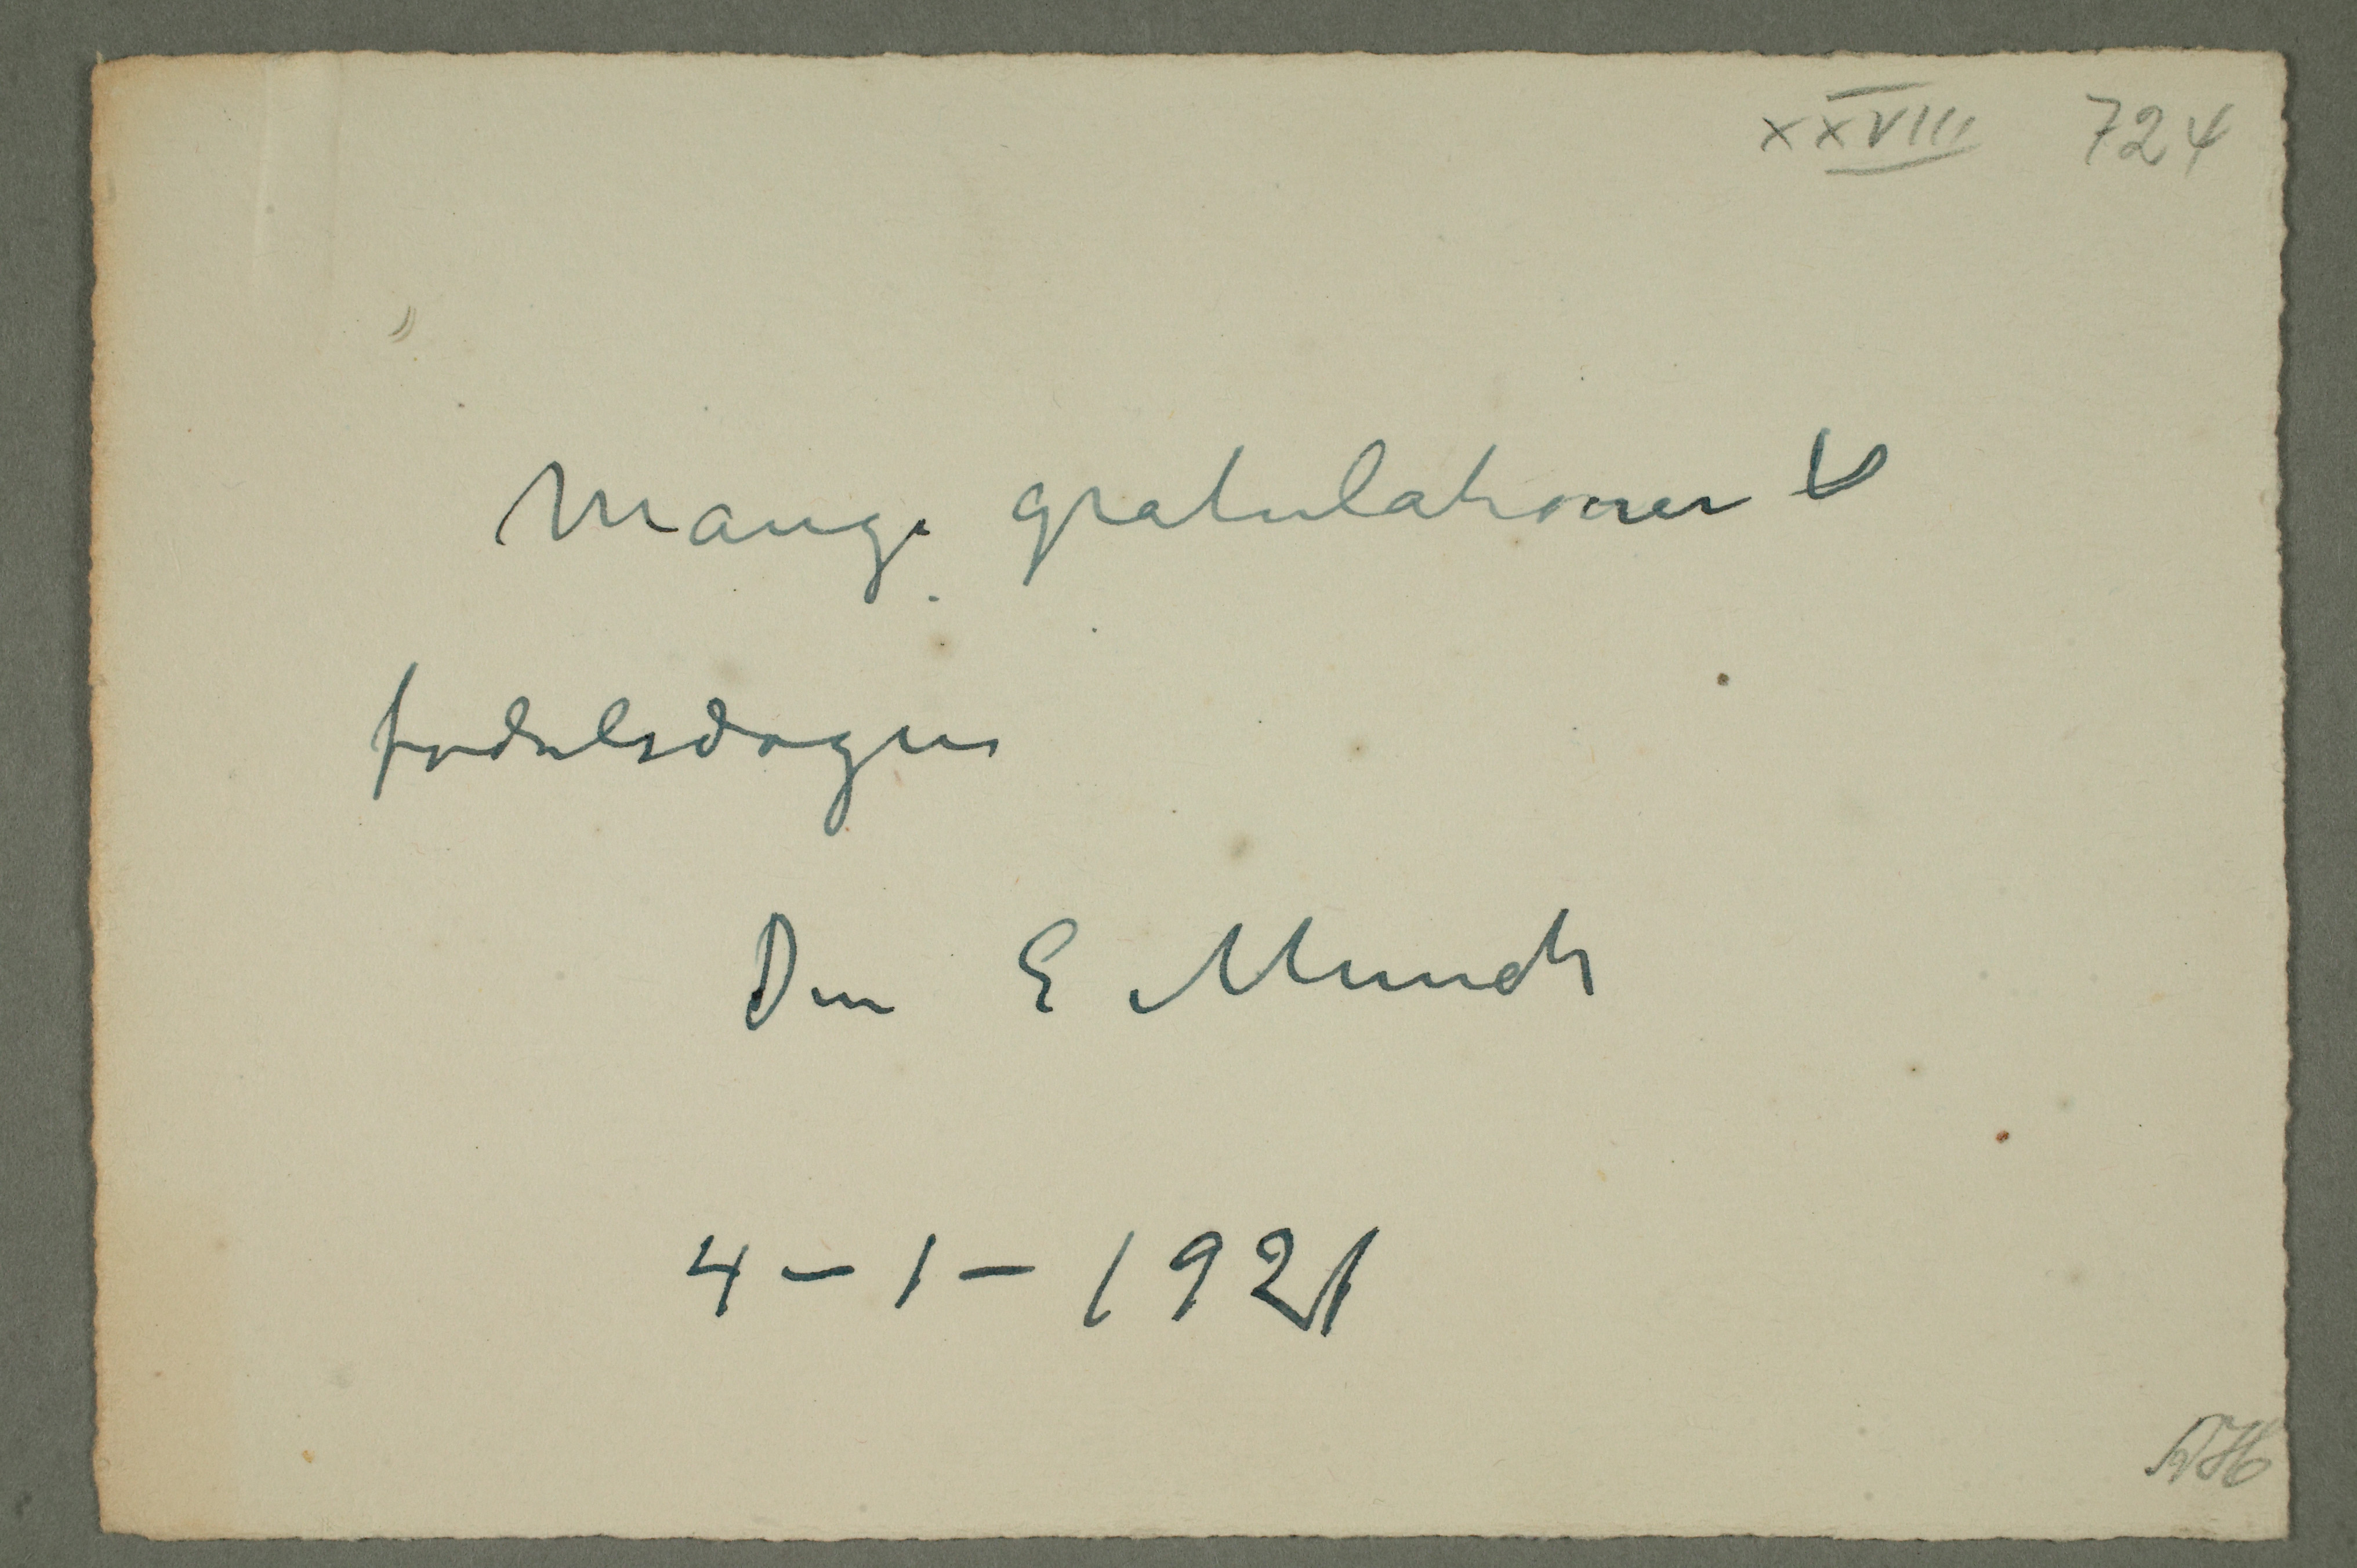 XXVIII 724
Mange gratulationer til
fødselsdagen
Din E Munch
4-1-1921